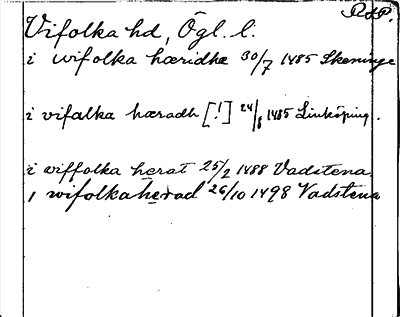 RAP.
Vifolka hd, Ögl. l.
i wifolka hæridhæ 30/7 1485 Skeninge
i vifalka hæradh [!] 24/8 1485 Linköping.
i wiffolka herat 25/2 1488 Vadstena
i wifolkaherad 26/10 1498 Vadstena